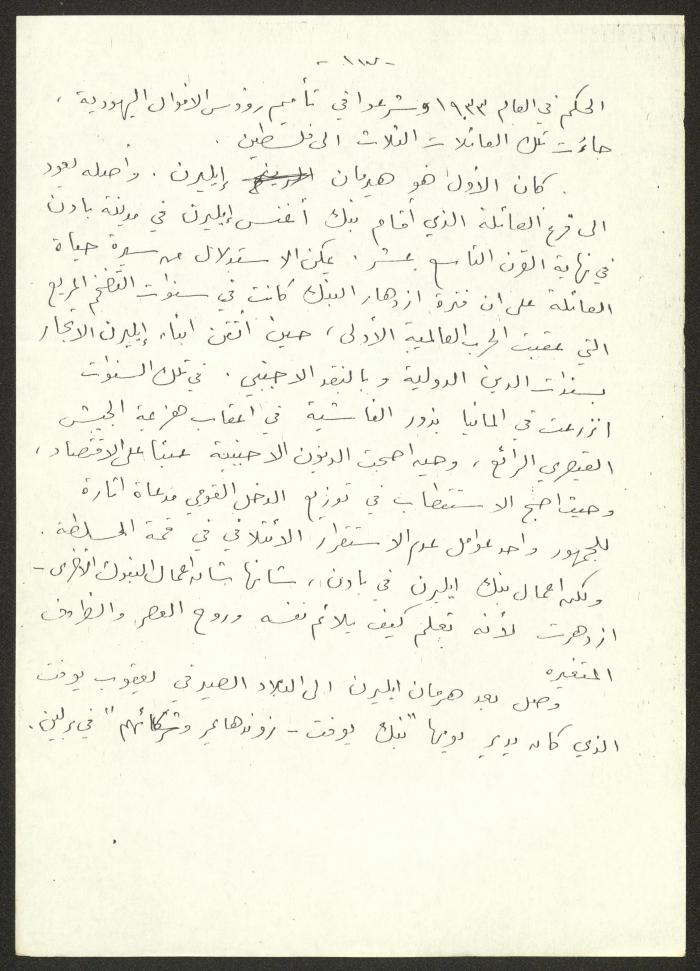 - ١١٧ -
الحكم في العام ١٩٣٣ وشرعوا في تأميم رؤوس الاموال اليهودية ،
جاءت تلك العائلات الثلاث الى فلسطين .
كان الأول هو هيرمان إيليرن . واصله يعود
الى فرع العائلة الذي أقام بنك أغنس إيليرن في مدينة بادن
في نهاية القرن التاسع عشر . يمكن الاستدلال من سيرة حياة
العائلة على ان فترة ازدهار البنك كانت في سنوات التضخم المريع
التي عقبت الحرب العالمية الأولى ، حين أتقن ابناء إيليرن الاتجار
بسندات الدين الدولية وبالنقد الاجنبي . في تلك السنوات
انزرعت في المانيا بذور الفاشية في اعقاب هزيمة الجيش
القيصري الرائع ، وحين اصبحت الديون الاجنبية عبئا على الاقتصاد ،
وحيث اصبح الاستقطاب في توزيع الدخل القومي مدعاة اثارة
للجمهور واحد عوامل عدم الاستقرار الائتلافي في قمة السلطة .
ولكن اعمال بنك ايليرن في بادن ، شانها شان اعمال البنوك الاخرى -
ازدهرت لأنه تعلم كيف يلائم نفسه وروح العصر والظروف
المتغيره
وصل بعد هرمان ايليرن الى البلاد الصيرفي يعقوب يوفت
الذي كان يدير يومها "بنك يوفت - زوندهايمر وشركائهم" في برلين .